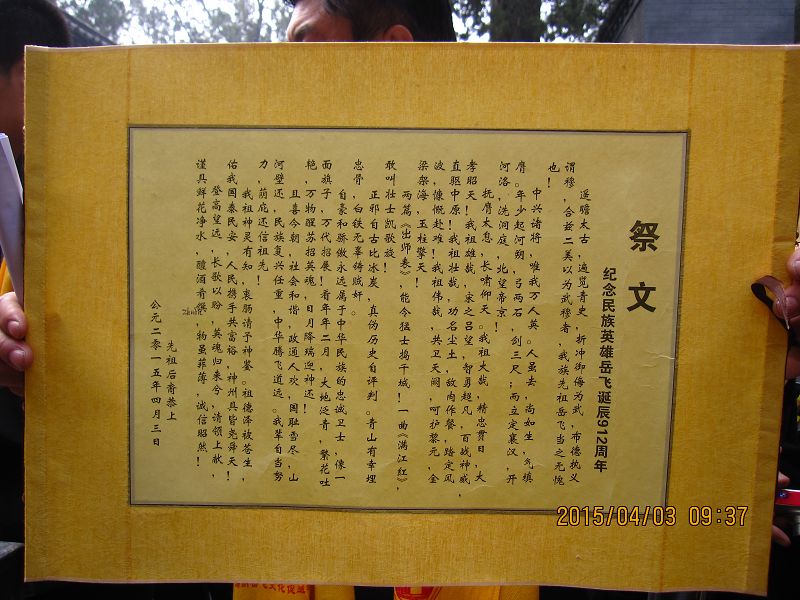 祭文
纪念民族英雄岳飞诞辰912周年
遥瞻太古,遍览青史,折冲御侮为武,布德执义
谓穆,合兹二美以为武穆者,我族先祖岳飞当之无愧
也!
中兴诸将,唯我万人英。人虽去,尚如生,气填
膺。年少起河朔,弓两石,剑三尺;而立定襄汉,开
河洛,洗洞庭,北望帝京!
抚膺太息,长啸仰天。我祖大哉,精忠贯日,大
孝昭天!我祖雄哉,宋之吕望,智勇超凡,百战神威,
直驱中原!我祖壮哉,功名尘土,敌肉作餐,踏定风
波,慷慨赴难!我祖伟哉,共卫天阙,呵护黎元,金
梁架海,玉柱擎天!
两篇《出师表》,能令猛士捣干城!一曲《满江红》,
敢叫壮士凯歌旋!
正邪自古比冰炭,真伪历史自评判。青山有幸埋
忠骨,白铁无辜铸贼奸。
自豪和骄傲永远属于中华民族的忠诚卫士,像一
面旗子,万代招展!看年年二月,大地泛青,繁花吐
艳,万物醒苏招英魂,日月降瑞迎神还!
且喜今朝,社会和谐,政通人欢,国耻雪尽,山
河璧还,民族复兴任重,中华腾飞道远。我辈自当努
力,荫庇还信祖先!
我祖神灵有知,衷肠请予神鉴。祖德泽被苍生,
佑我国泰民安,人民携手共富裕,神州具皆尧舜天!
登高望远,长歌以盼,英魂归来兮,请领上献,
谨具鲜花净水,醴酒肴馔,物虽菲薄,诚信昭然!
先祖后裔恭上
公元二零一五年四月三日
2015/04/03 09:37